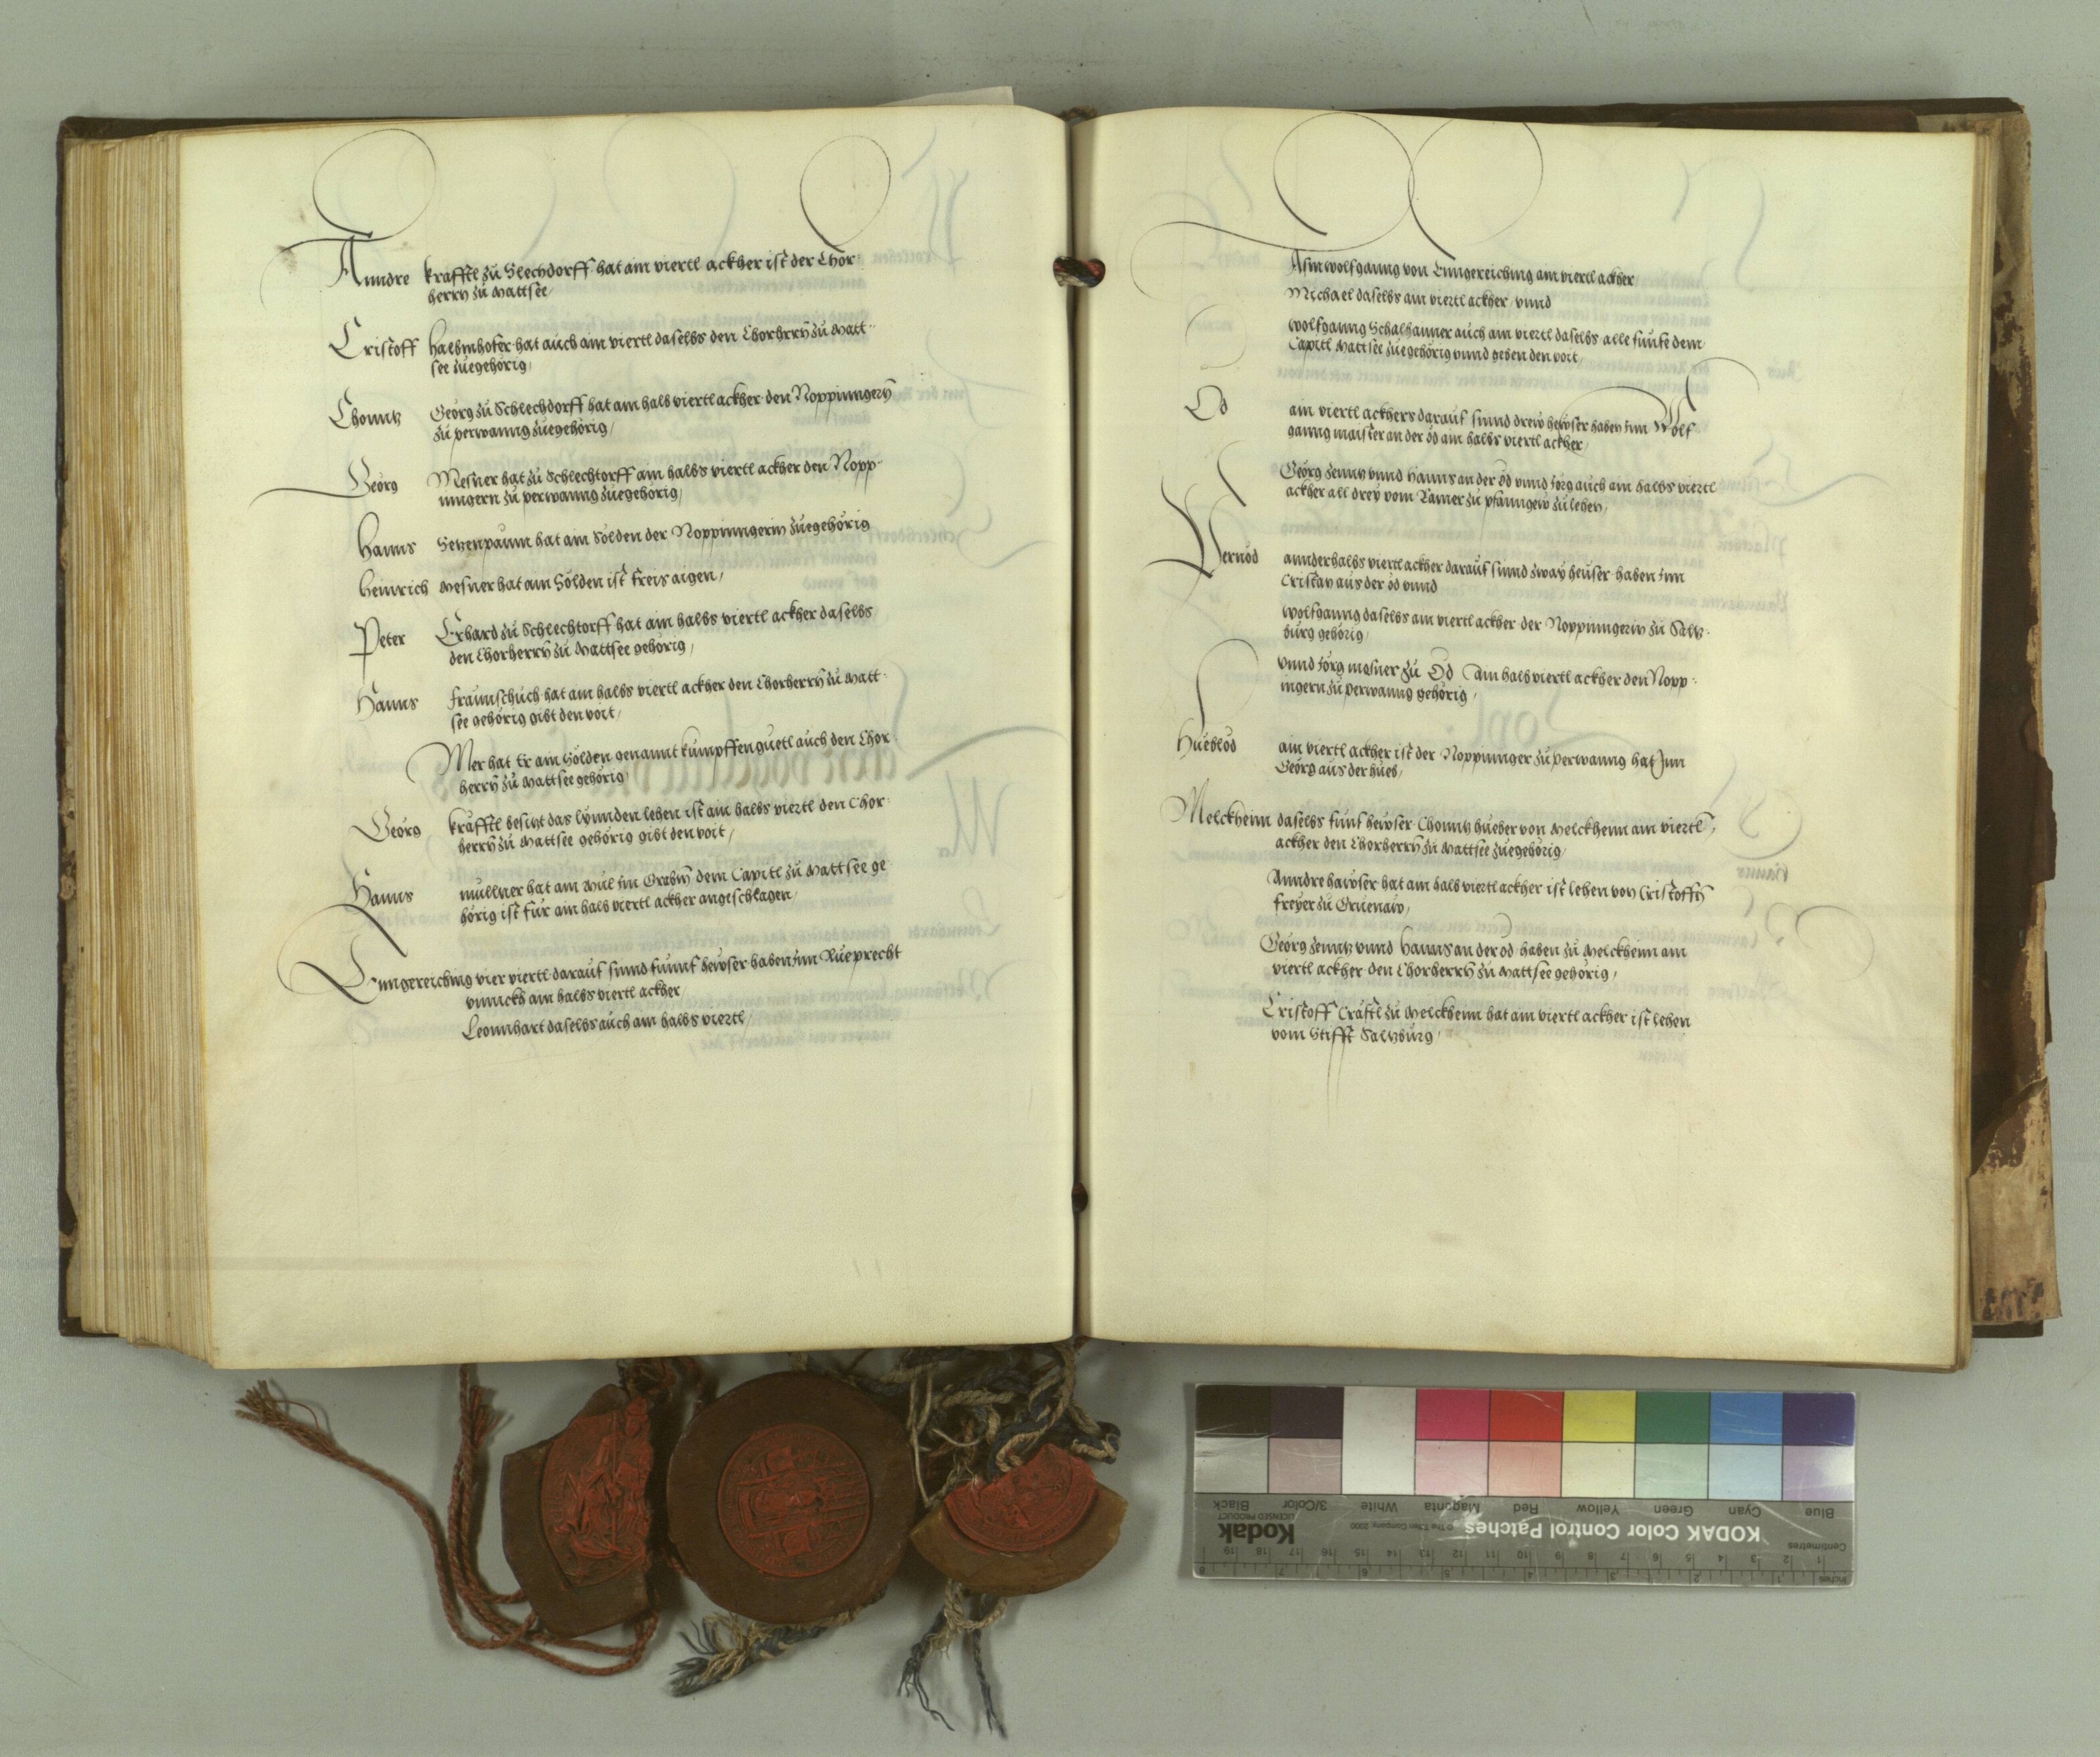 Anndre krafftl zu Slechdorff hat ain viertl ackher ist der Chor-
herrn zu Mattsee
Cristoff Halbmhofer hat auch ain viertl daselbs den Chorherrn zu Matt-
see zuegehörig
Chonntz Georg zu Schlechdorff hat ain halb viertl ackher den Noppinngern
zu perwanng zuegehörig
Georg Mesner hat zu Schlechtorff ain halbs viertl ackher den Nopp-
inngern zu perwanng zuegehörig
Hanns Setzenpaum hat ain Sölden der Noppinngerin zuegehörig
Heinrich Mesner hat ain Sölden ist freis aigen
Peter Erhard zu Schlechtorff hat ain halbs viertl ackher daselbs
den Chorherrn zu Mattsee gehörig
Hanns fraunschuch hat ain halbs viertl ackher den Chorherrn zu Matt-
see gehörig gibt den voit
Mer hat Er ain Sölden genannt kumpffenguetl auch den Chor-
herrn zu Mattsee gehörig
Georg krafftl besitzt das lehen ist ain halbs viertl den Chor-
herrn zu Mattsee gehörig gibt den voit
Hanns mullner hat ain Mül im Grabm dem Capitl zu Mattsee ge
hörig ist für ain halb viertl ackher angeschlagen
vier viertl darauf sinnd funnf hewser haben Inn Rueprecht
ain halbs viertl ackher
Leonnhart daselbs auch ain halbs viertl
Asm wolfganng von ain viertl ackher
Michael daselbs ain viertl ackher vnnd
wolfganng Schalhamer auch ain viertl daselbs alle funfe dem
Capitl Mattsee zuegehörig vnnd geben den voit
Öd ain viertl ackhers darauf sinnd drew hewser haben Inn Wolf
ganng maister an der öd ain halbs viertl ackher
Georg Zenntz vnnd Hanns an der öd vnnd Jörg auch ain halbs viertl
ackher all drey vom zu pfänngew zu lehen
Pernöd annderhalbs viertl ackher darauf sinnd zway heuser haben Inn
Cristan aus der öd vnnd
wolfganng daselbs ain viertl ackher der Noppinngerin zu Saltz-
burg gehörig
vnnd Jörg mesner zu Öd ain halb viertl ackher den Nopp-
ingern zu perwanng gehörig
Hueblöd ain viertl ackher ist der Noppinnger zu perwanng hat Inn
Georg aus der hueb
Melckheim daselbs funf hewser Chonntz hueber von Melckheim ain viertl
ackher den Chorherrn zu Mattsee zuegehörig
Anndre hawser hat ain halb viertl ackher ist lehen von Cristoffn
freyer zu Gruenaw
Georg Zenntz vnnd Hanns an der öd haben zu Melckheim ain
viertl ackher den Chorherrn zu Mattsee gehörig
Cristoff Craftl zu Melckheim hat ain viertl ackher ist lehen
vom Stifft Saltzburg
Blue Cyan Green Yellow Red Magenta White 3/Color Black
KODAK Color Control Patches
Kodak
LICENSED PRODUCT
Centimetres
Inches